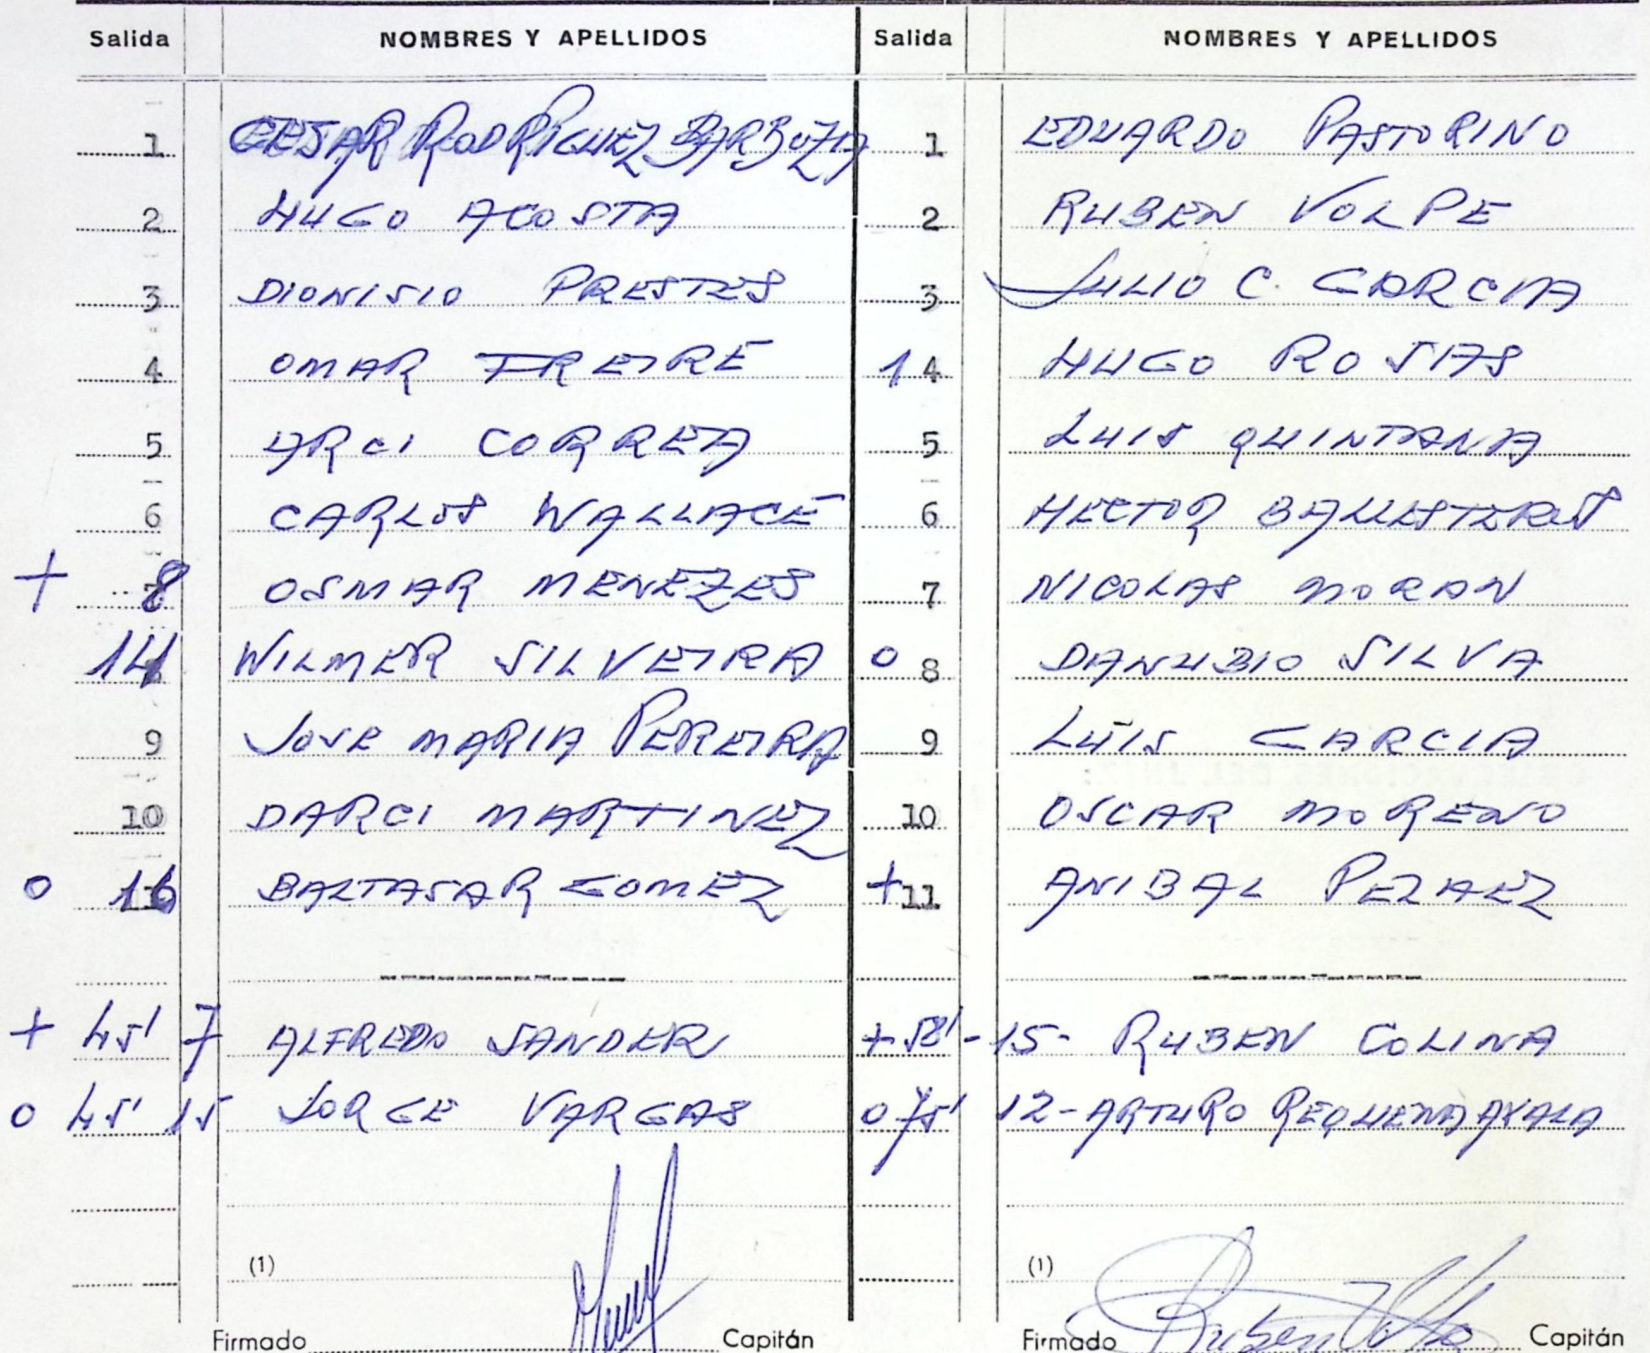 Salida NOMBRES Y APELLIDOS Salida NOMBRES Y APELLIDOS
1 CESAR RODRIGUEZ BARBOZA 1 EDUARDO PASTORINO
2 HUGO ACOSTA 2 RUBEN VOLPE
3 DIONISIO PRESTES 3 JULIO C. GARCIA
4 OMAR FREIRE 14 HUGO ROSAS
5 ARCI CORREA 5 LUIS QUINTANA
6 CARLOS WALLACE 6 HECTOR BALLESTEROS
+ 8 OSMAR MENEZES 7 NICOLAS MORAN
14 WILMER SILVEIRA o 8 DANUBIO SILVA
9 JOSE MARIA PEREIRA 9 LUIS GARCIA
10 DARCI MARTINEZ 10 OSCAR MORENO
o 16 BALTASAR GOMEZ +11 ANIBAL PELAEZ
+ 45' 7 ALFREDO SANDER +58' -15- RUBEN COLINA
o 45' 15 JORGE VARGAS o 75' 12-ARTURO REQUENA AYALA
(1) (1)
Firmado Capitán Firmado Ruben Capitán